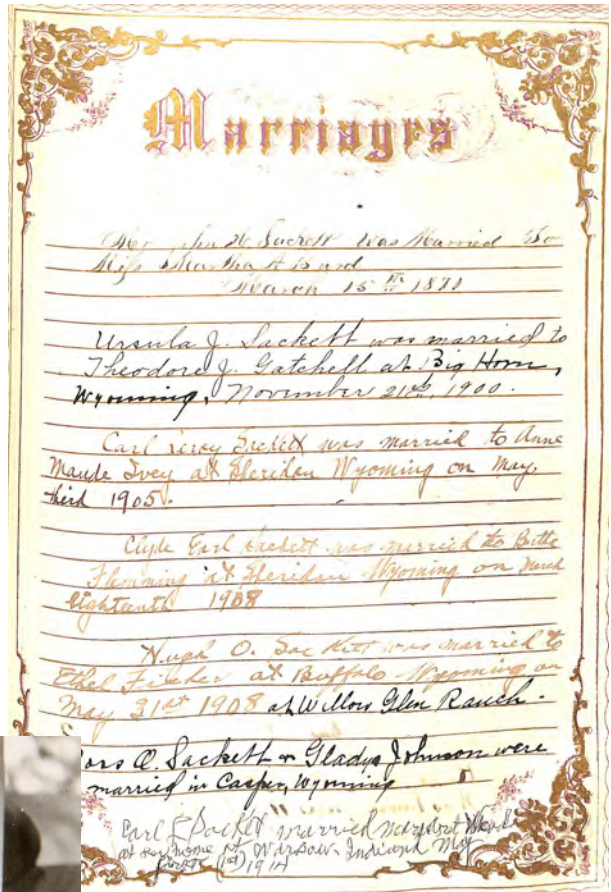 Marriages
Mr John W. Sackett Was Married To
Miss Martha A
March 15th 18
Ursula J. Sackett was married to
Theodore J. Gatchell at Big Horn,
Wyoming, November 21st, 1900.
Carl Leroy Sackett was married to Anne
Maude Ivey at Sheridan Wyoming on May
third 1905.
Clyde Earl Sackett was married to
Flemming at Sheridan Wyoming on March
eighteenth 1908
Hugh O. Sackett was married to
Ethel Fischer at Buffalo Wyoming on
May 21st 1908 at Willow Glen Ranch.
O. Sackett & Gladys Johnson were
married in Casper, Wyoming
Earl E Sackett married Margaret
at her home at Warsaw, Indiana May
(1st) 1914